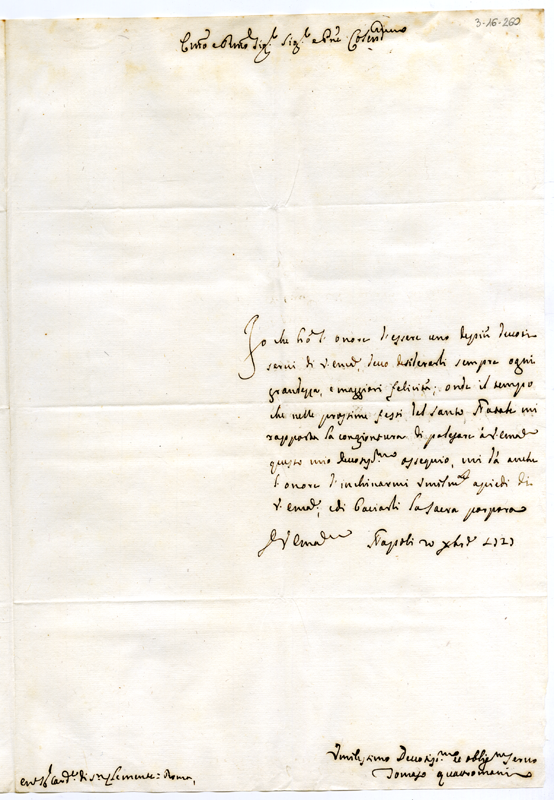 3-16-260
Em̃o e Rmo Sig.r Sig.r e Pne Col.mo
Io che hò l'onore d'essere uno de più devoti
servi di V. Ema, devo desiderarli sempre ogni
grandezza, e maggiori felicità; onde il tempo
che nelle prossime feste del santo Natale mi
rapporta la congiontura di palesare à V. Ema
questo mio devotiss.mo ossequio, mi dà anche
l'onore d'inchinarmi umilm.te a piedi di
V. Ema, e di baciarli la sacra porpora
Di V. Ema Napoli 20 Xbre
Umilissimo Devotiss.mo et oblig.mo Servo
Quattromani
Card.l di S. Clemente = Roma